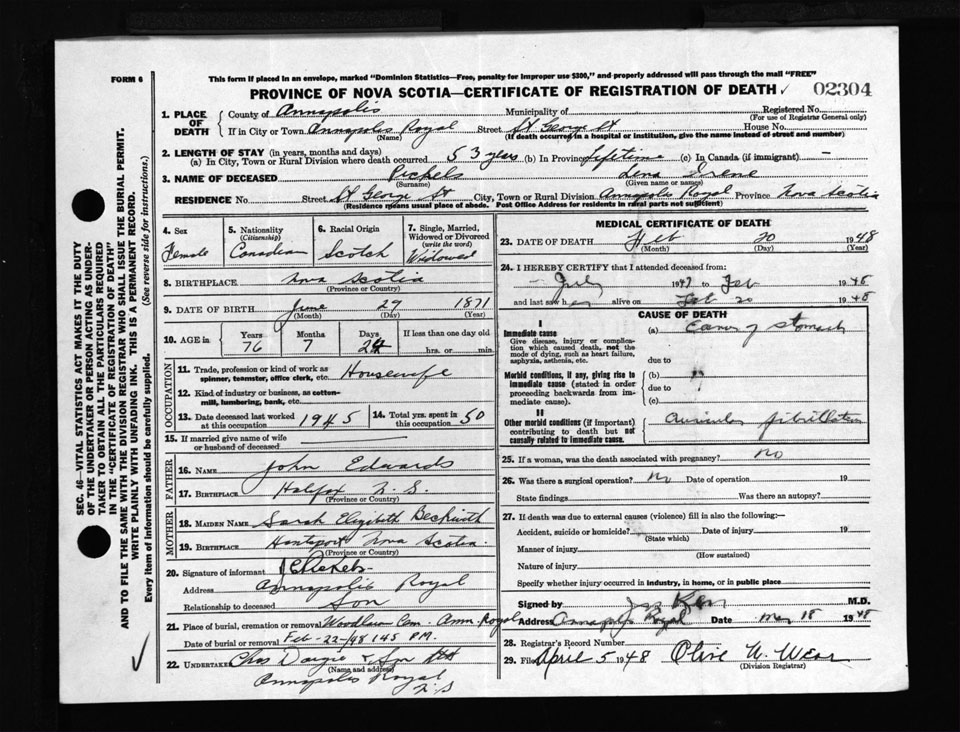 FORM 6
This form if placed in an envelope, marked "Dominion Statistics—Free, penalty for improper use $300," and properly addressed will pass through the mail "FREE"
PROVINCE OF NOVA SCOTIA—CERTIFICATE OF REGISTRATION OF DEATH ✓ 02304
1. PLACE OF DEATH
County of Annapolis Municipality of Registered No.
(For use of Registrar General only)
If in City or Town Annapolis Royal Street St George St House No.
(Name) (If death occurred in a hospital or institution, give the name instead of street and number)
2. LENGTH OF STAY (in years, months and days)
(a) In City, Town or Rural Division where death occurred 53 years (b) In Province Lifetime (c) In Canada (if immigrant) —
3. NAME OF DECEASED Pickels Lena Irene
(Surname) (Given name or names)
RESIDENCE No. Street St George St City, Town or Rural Division Annapolis Royal Province Nova Scotia
(Residence means usual place of abode. Post Office Address for residents in rural parts not sufficient)
4. Sex Female
5. Nationality (Citizenship) Canadian
6. Racial Origin Scotch
7. Single, Married, Widowed or Divorced (write the word) Widowed
8. BIRTHPLACE Nova Scotia
(Province or Country)
9. DATE OF BIRTH June 27 1871
(Month) (Day) (Year)
10. AGE in Years 76 Months 7 Days 24 If less than one day old hrs. or min.
OCCUPATION
11. Trade, profession or kind of work as spinner, teamster, office clerk, etc. Housewife
12. Kind of industry or business, as cotton-mill, lumbering, bank, etc.
13. Date deceased last worked at this occupation 1945
14. Total yrs. spent in this occupation 50
15. If married give name of wife or husband of deceased
FATHER
16. NAME John Edwards
17. BIRTHPLACE Halifax N.S.
(Province or Country)
MOTHER
18. MAIDEN NAME Sarah Elizabeth Beckwith
19. BIRTHPLACE Hantsport Nova Scotia.
(Province or Country)
20. Signature of informant Pickels
Address Annapolis Royal
Relationship to deceased Son
21. Place of burial, cremation or removal Woodlawn Cem. Ann Royal
Date of burial or removal Feb-22-/48 145 PM.
22. UNDERTAKER Chas Dargie & Son
(Name and address)
Annapolis Royal
N.S
MEDICAL CERTIFICATE OF DEATH
23. DATE OF DEATH Feb 20 1948
(Month) (Day) (Year)
24. I HEREBY CERTIFY that I attended deceased from:
July 1947 to Feb 1948
and last saw her alive on Feb 20 1948
CAUSE OF DEATH
I
Immediate cause
Give disease, injury or complication which caused death, not the mode of dying, such as heart failure, asphyxia, asthenia, etc.
(a) Cancer of stomach
due to
Morbid conditions, if any, giving rise to immediate cause (stated in order proceeding backwards from immediate cause).
(b)
due to
(c)
II
Other morbid conditions (if important) contributing to death but not causally related to immediate cause.
Auricular fibrillation
25. If a woman, was the death associated with pregnancy? No
26. Was there a surgical operation? No Date of operation 19
State findings Was there an autopsy?
27. If death was due to external causes (violence) fill in also the following:—
Accident, suicide or homicide? Date of injury 19
(State which)
Manner of injury
(How sustained)
Nature of injury
Specify whether injury occurred in industry, in home, or in public place
Signed by Kerr M.D.
Address Annapolis Royal Date Mar 18 1948
28. Registrar's Record Number
29. Filed April 5 1948 Olive
(Division Registrar)
SEC. 46—VITAL STATISTICS ACT MAKES IT THE DUTY
OF THE UNDERTAKER OR PERSON ACTING AS UNDER-
TAKER TO OBTAIN ALL THE PARTICULARS REQUIRED
IN THE "CERTIFICATE OF REGISTRATION OF DEATH"
AND TO FILE THE SAME WITH THE DIVISION REGISTRAR WHO SHALL ISSUE THE BURIAL PERMIT.
WRITE PLAINLY WITH UNFADING INK. THIS IS A PERMANENT RECORD.
Every item of information should be carefully supplied. (See reverse side for instructions.)